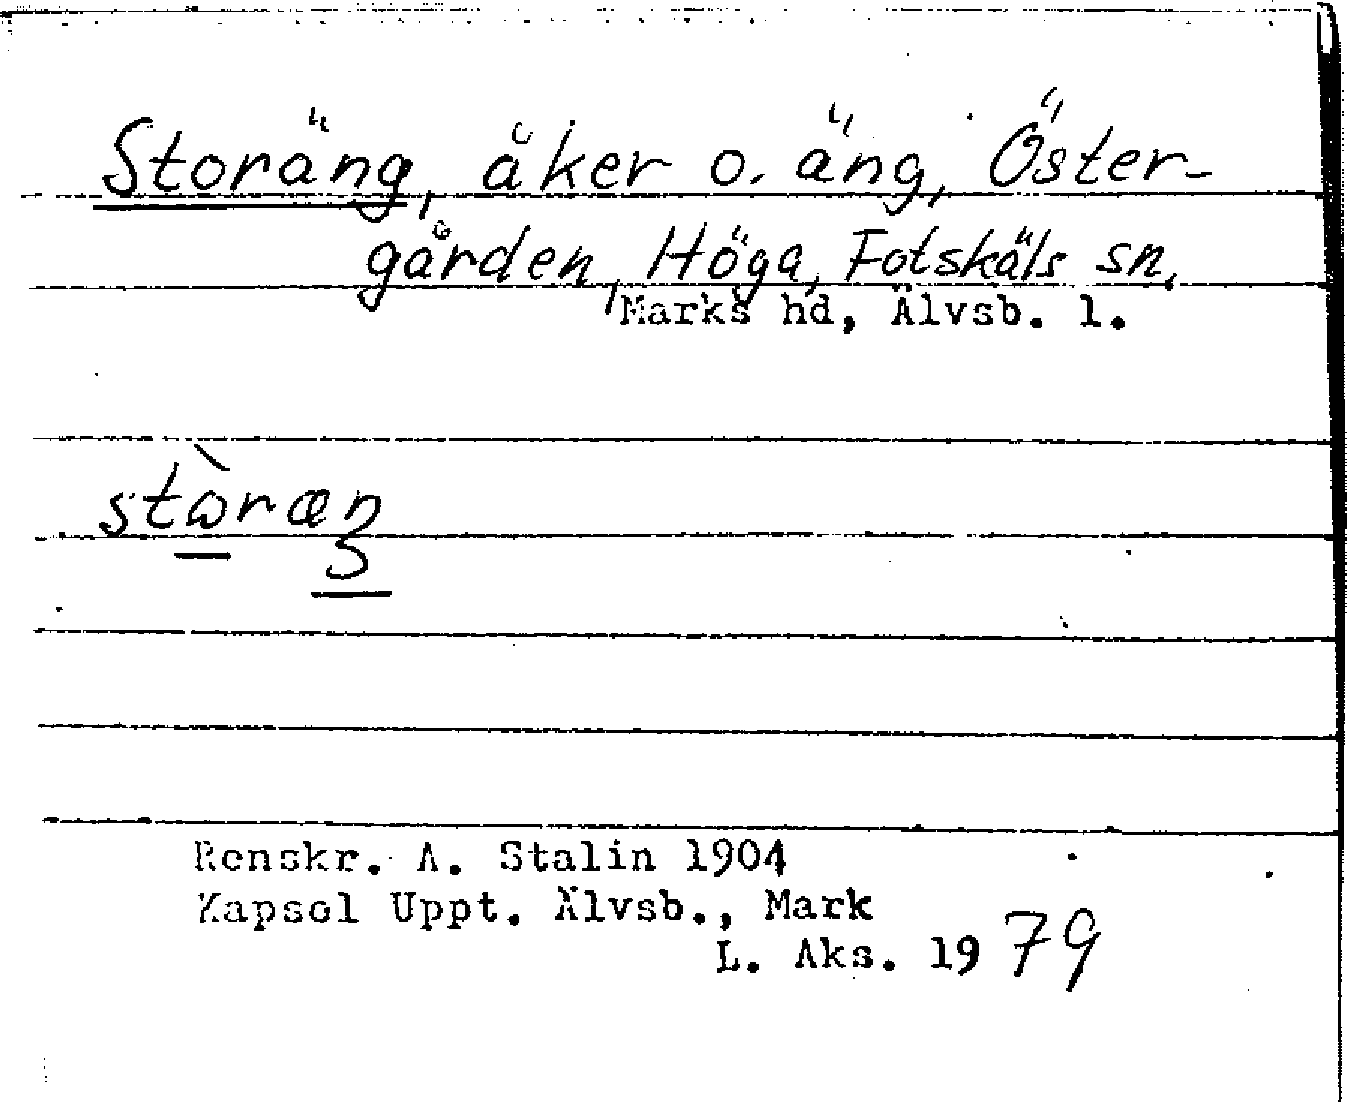 Storäng, åker o. äng, Öster-
gården, Höga, Fotskäls sn,
Marks hd, Älvsb. l.
stὼræŋ
3
Renskr. A. Stalin 1904
Kapsel Uppt. Älvsb., Mark
L. Aks. 1979